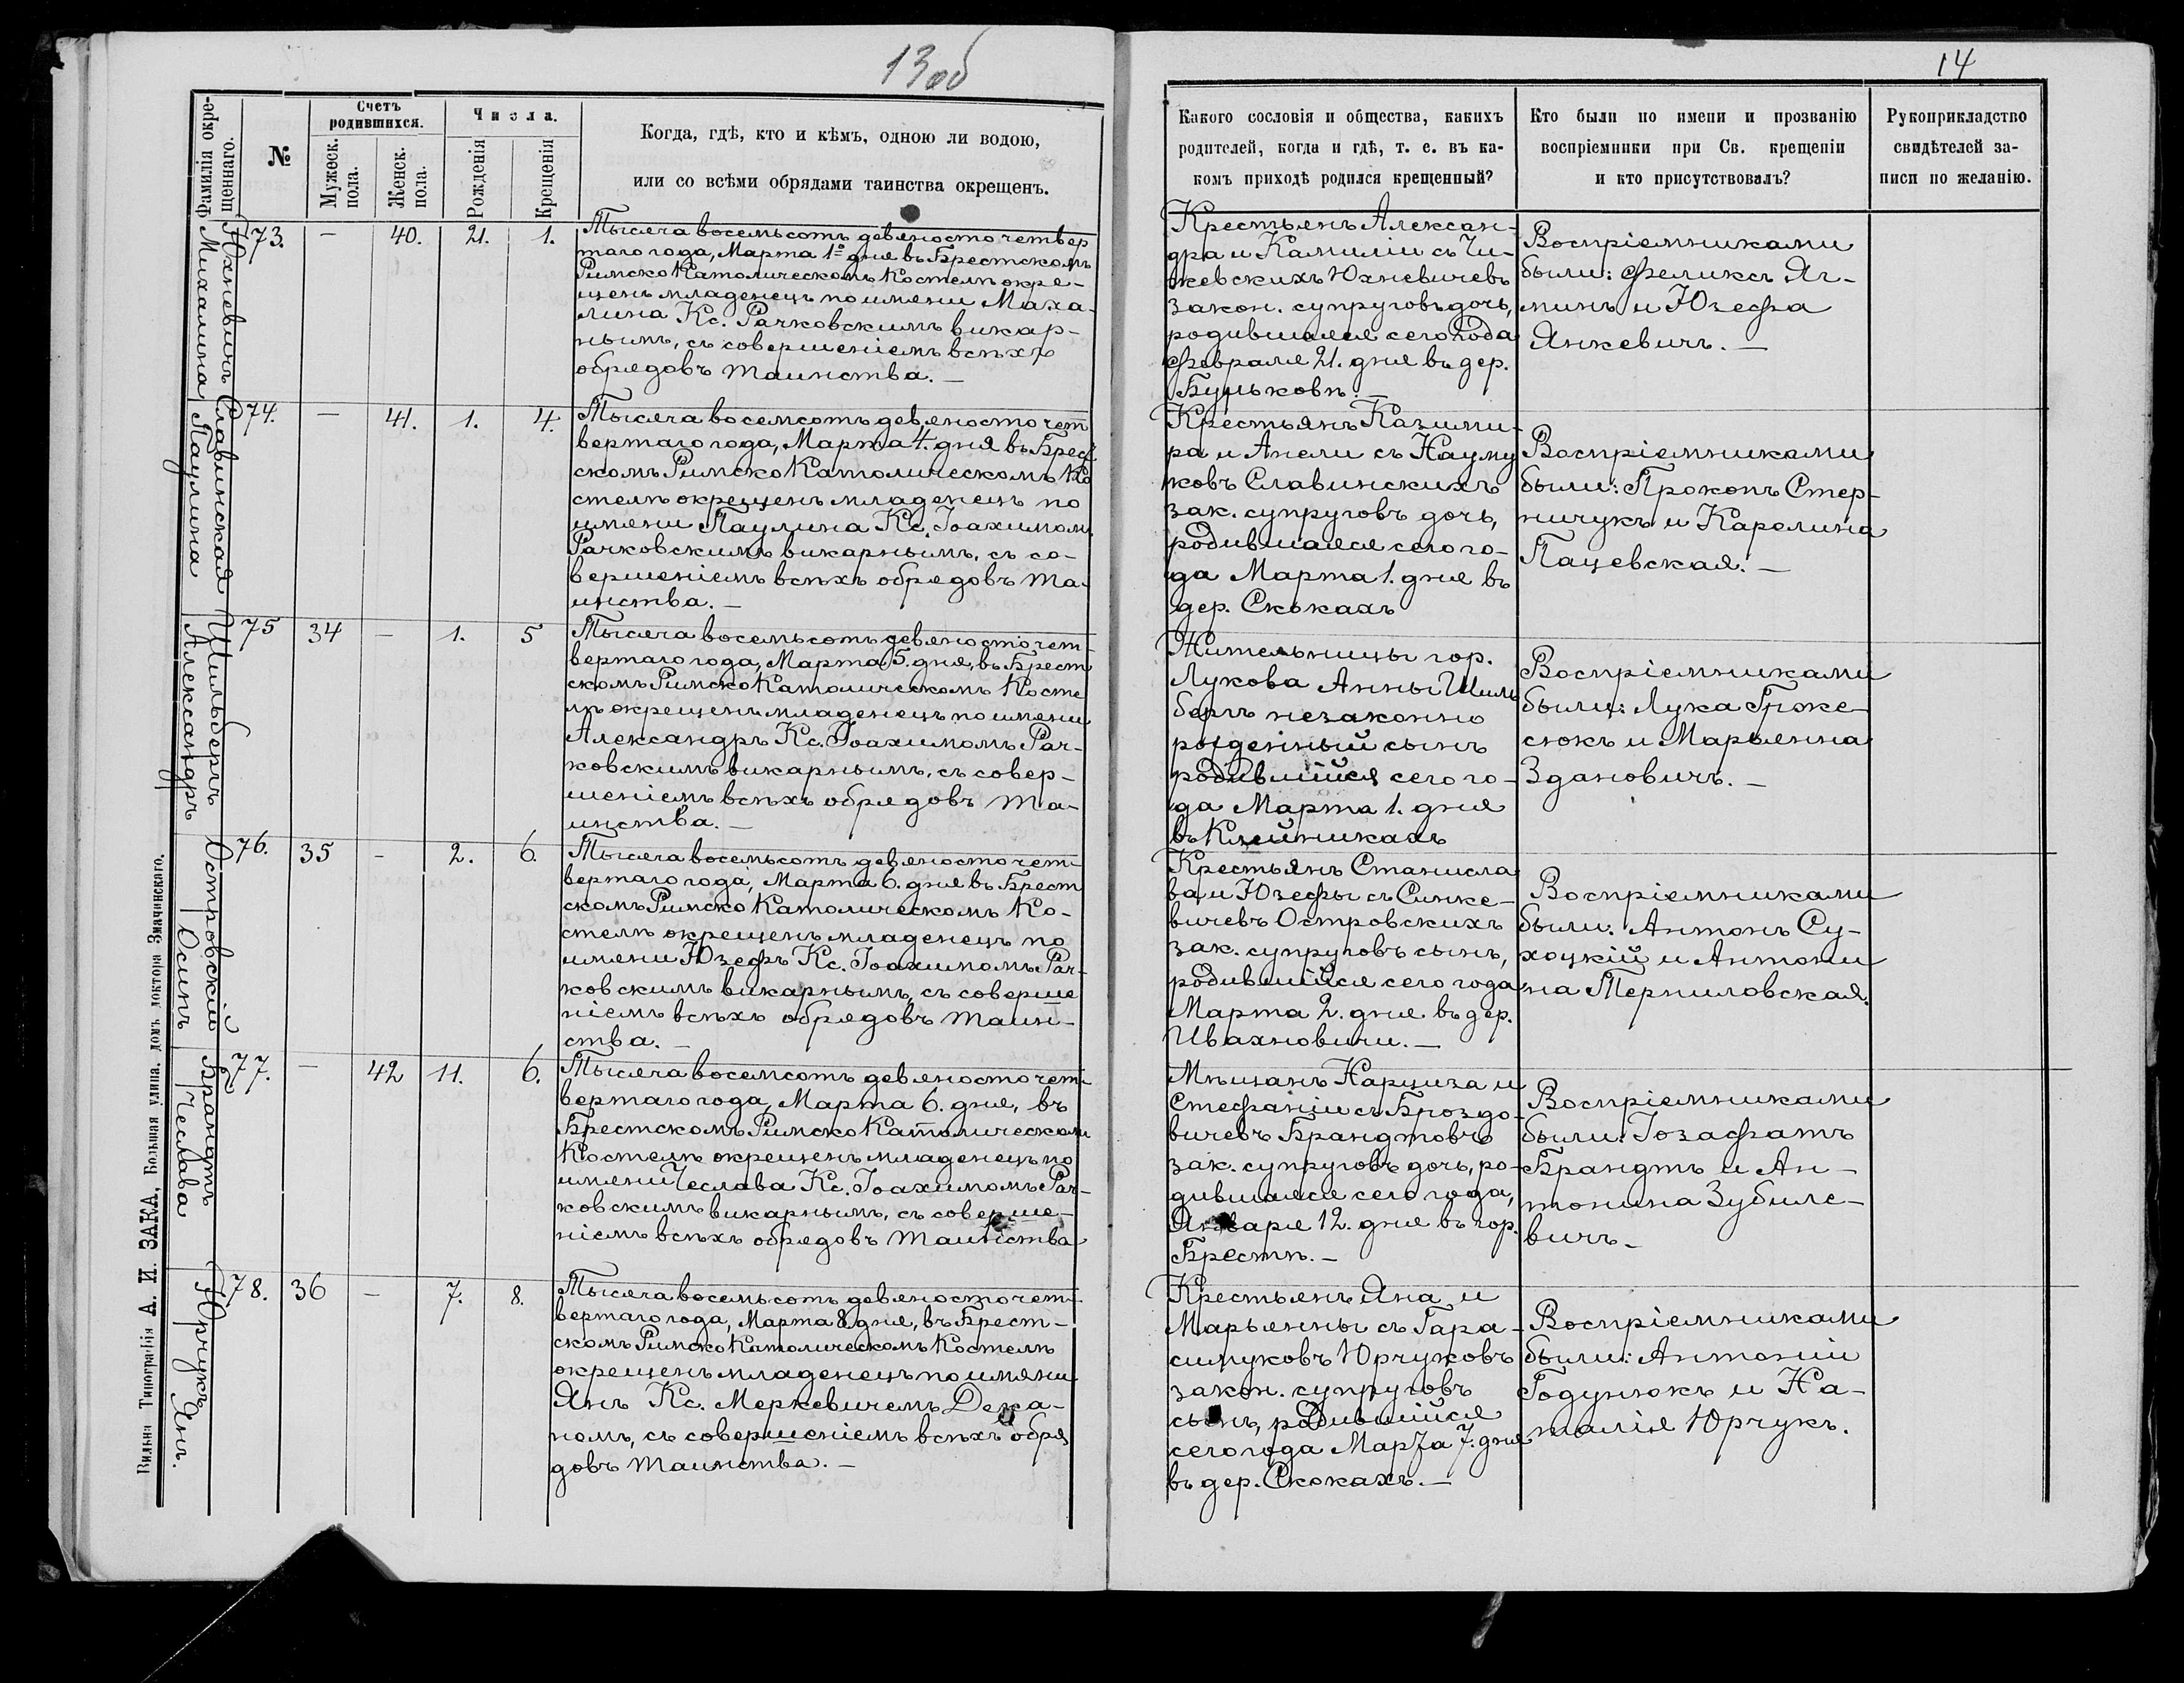 13 об
14
Фамилія окре-
щеннаго.
№
Счетъ
родившихся.
Мужеск.
пола.
Женск.
пола.
Числа.
Рожденія
Крещенія
Когда, гдѣ, кто и кѣмъ, одною ли водою,
или со всѣми обрядами таинства окрещенъ.
Какого сословія и общества, какихъ
родителей, когда и гдѣ, т. е. въ ка-
комъ приходѣ родился крещенный?
Кто были по имени и прозванію
воспріемники при Св. крещеніи
и кто присутствовалъ?
Рукоприкладство
свидѣтелей за-
писи по желанію.
Юхневичъ
Михалина
73. — 40. 21. 1.
Тысяча восемьсотъ девяносто четвер
таго года, Марта 1го дня въ Брестскомъ
Римско Католическомъ Костелѣ окре-
щенъ младенецъ по имени Миха-
лина Кс. Рачковскимъ викар-
нымъ, съ совершеніемъ всѣхъ
обрядовъ таинства. —
Крестьянъ Алексан-
дра и Камиліи съ Чи-
жевскихъ Юхневичевъ
закон. супруговъ дочь,
родившаяся сего года
Февраля 21. дня въ дер.
Бульковѣ. —
Воспріемниками
были: Феликсъ Яг-
минъ и Юзефа
Янкевичъ. —
Славинская
Паулина
74. — 41. 1. 4.
Тысяча восемсотъ девяносто чет
вертаго года, Марта 4. дня въ Брест
скомъ Римско Католическомъ Ко
стелѣ окрещенъ младенецъ по
имени Паулина Кс. Іоахимомъ
Рачковскимъ викарнымъ, съ со-
вершеніемъ всѣхъ обрядовъ та-
инства. —
Крестьянъ Казими-
ра и Анели съ Науму
ковъ Славинскихъ
зак. супруговъ дочь,
родившаяся сего го-
да Марта 1. дня въ
дер. Скокахъ
Воспріемниками
были: Прокопъ Стер-
ничукъ и Каролина
Пацевская. —
Шильбергъ
Александръ
75 34 — 1. 5
Тысяча восемьсотъ девяносто чет-
вертаго года, Марта 5. дня, въ Брест
скомъ Римско Католическомъ Косте
лѣ окрещенъ младенецъ по имени
Александръ Кс. Іоахимомъ Рач-
ковскимъ викарнымъ, съ совер-
шеніемъ всѣхъ обрядовъ та-
инства. —
Жительницы гор.
Лукова Анны Шиль
бергъ незаконно
рожденный сынъ
родившійся сего го-
да Марта 1. дня
въ Клейникахъ
Воспріемниками
были: Лука Гроже
сюкъ и Марьянна
Здановичъ. —
Островскій
Осипъ
76. 35 — 2. 6.
Тысяча восемьсотъ девяносто чет-
вертаго года, Марта 6. дня въ Брест
скомъ Римско Католическомъ Ко-
стелѣ окрещенъ младенецъ по
имени Юзефъ Кс. Іоахимомъ Рач-
ковскимъ викарнымъ, съ соверше
ніемъ всѣхъ обрядовъ таин-
ства. —
Крестьянъ Станисла
ва и Юзефы съ Синке-
вичевъ Островскихъ
зак. супруговъ сынъ,
родившійся сего года
Марта 2. дня въ дер.
Ивахновичи. —
Воспріемниками
были: Антонъ Су-
хоцкій и Антони
на Терниловская.
Брандтъ
Чеслава
77. — 42 11. 6.
Тысяча восемсотъ девяносто чет-
вертаго года, Марта 6. дня, въ
Брестскомъ Римско Католическомъ
Костелѣ окрещенъ младенецъ по
имени Чеслава Кс. Іоахимомъ Рач-
ковскимъ викарнымъ, съ соверше-
ніемъ всѣхъ обрядовъ таинства
Мѣщанъ Нарциза и
Стефаніи съ Броздо-
вичевъ Брандтовъ
зак. супруговъ дочь, ро-
дившаяся сего года,
Января 12. дня въ гор.
Брестѣ. —
Воспріемниками
были: Іозафатъ
Брандтъ и Ан-
тонина Зубиле-
вичъ —
Юрчукъ
Янъ.
78. 36 — 7. 8.
Тысяча восемьсотъ девяносто чет-
вертаго года, Марта 8 дня, въ Брест-
скомъ Римско Католическомъ Костелѣ
окрещенъ младенецъ по имени
Янъ Кс. Меркевичемъ Дека-
номъ, съ совершеніемъ всѣхъ обря
довъ таинства. —
Крестьянъ Яна и
Марьянны съ Гара-
симуковъ Юрчуковъ
закон. супруговъ
сынъ, родившійся
сего года Марта 7. дня
въ дер. Скокахъ. —
Воспріемниками
были: Антоній
Годунюкъ и На-
талія Юрчукъ.
Вильна Типографія А. И. ЗАКА, Большая улица, домъ доктора Змачинскаго.